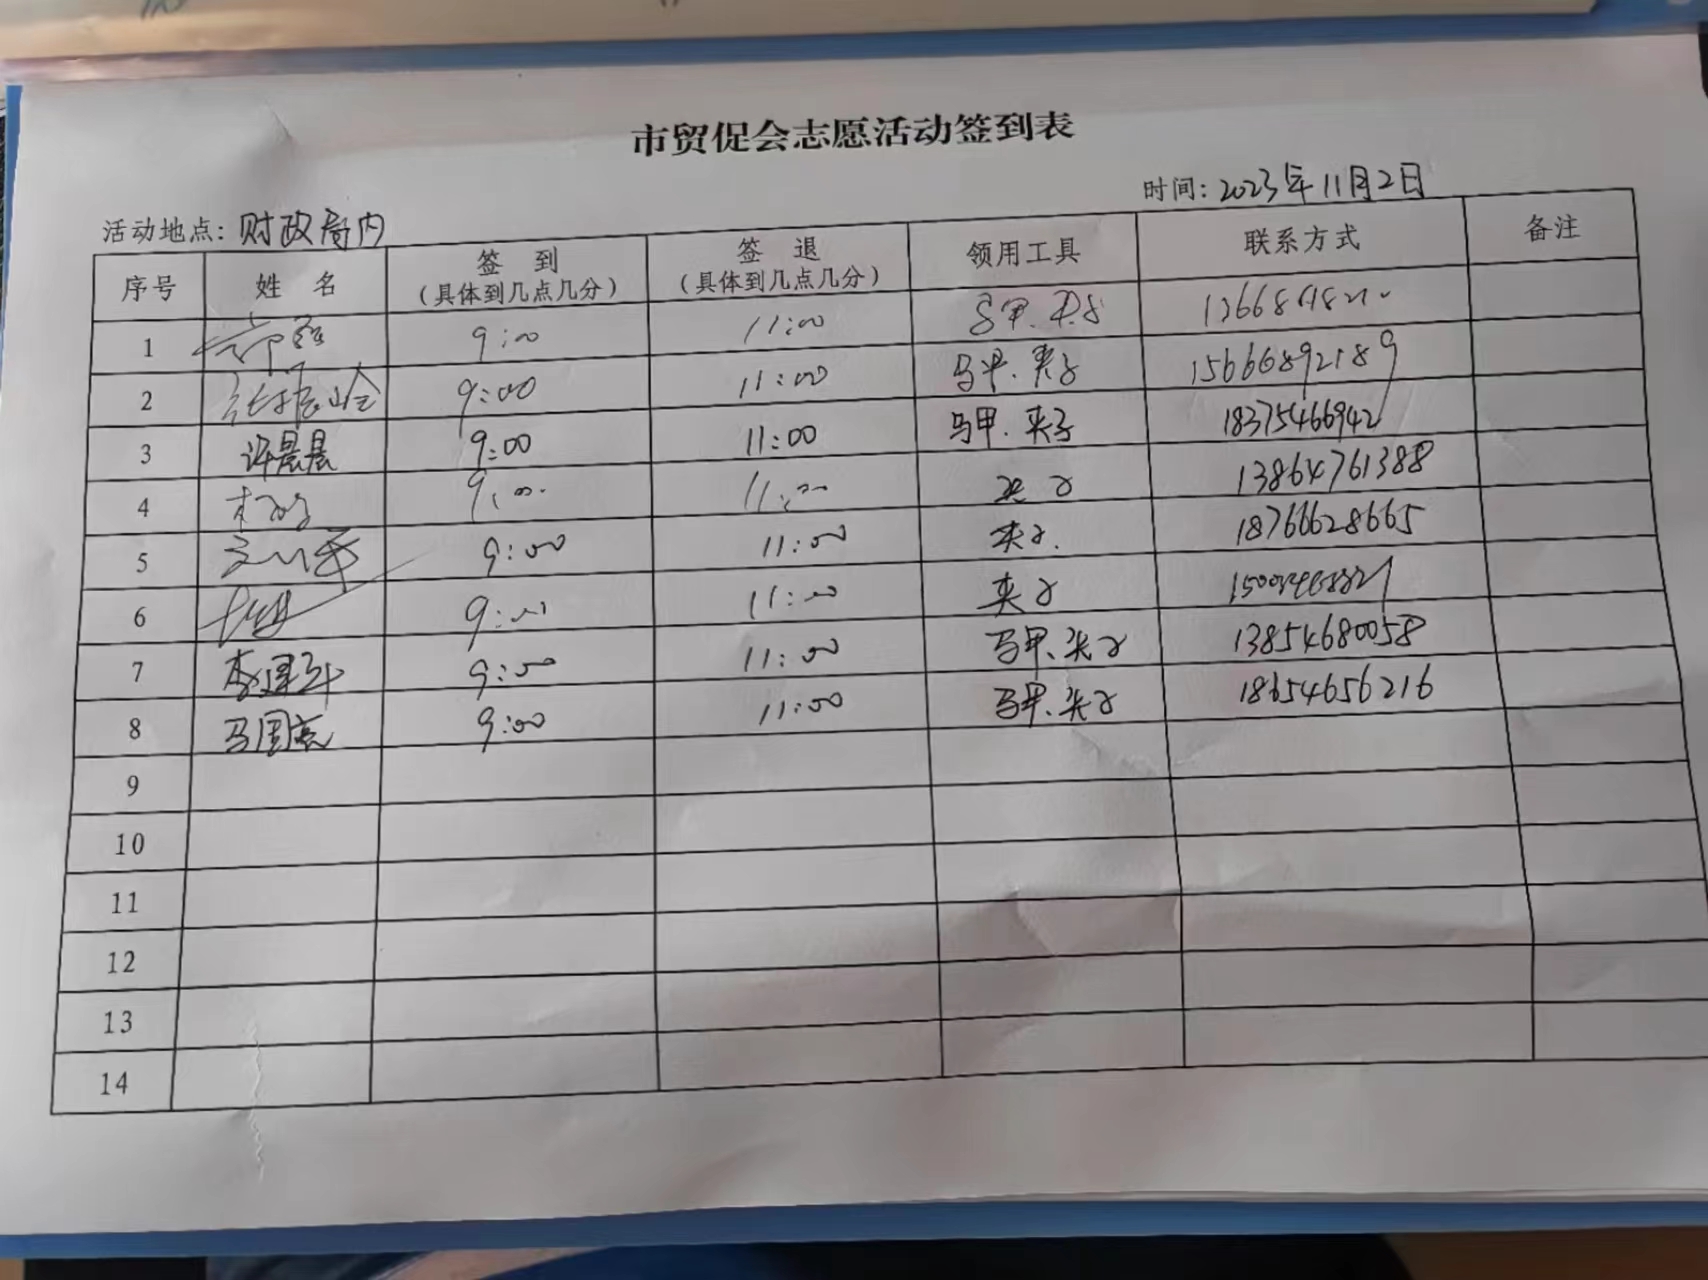 市贸促会志愿活动签到表
时间: 2023年11月2日
活动地点: 财政局内
序号 姓名 签到 (具体到几点几分) 签退 (具体到几点几分) 领用工具 联系方式 备注
1 9:00 11:00 马甲、夹子
2 9:00 11:00 马甲、夹子 15666892189
3 许晨晨 9:00 11:00 马甲、夹子 18375466942
4 9:00 11:00 夹子 13864761388
5 9:00 11:00 夹子. 18766628665
6 9:00 11:00 夹子
7 李建军 9:00 11:00 马甲、夹子 13854680058
8 马国亮 9:00 11:00 马甲、夹子 18654656216
9
10
11
12
13
14